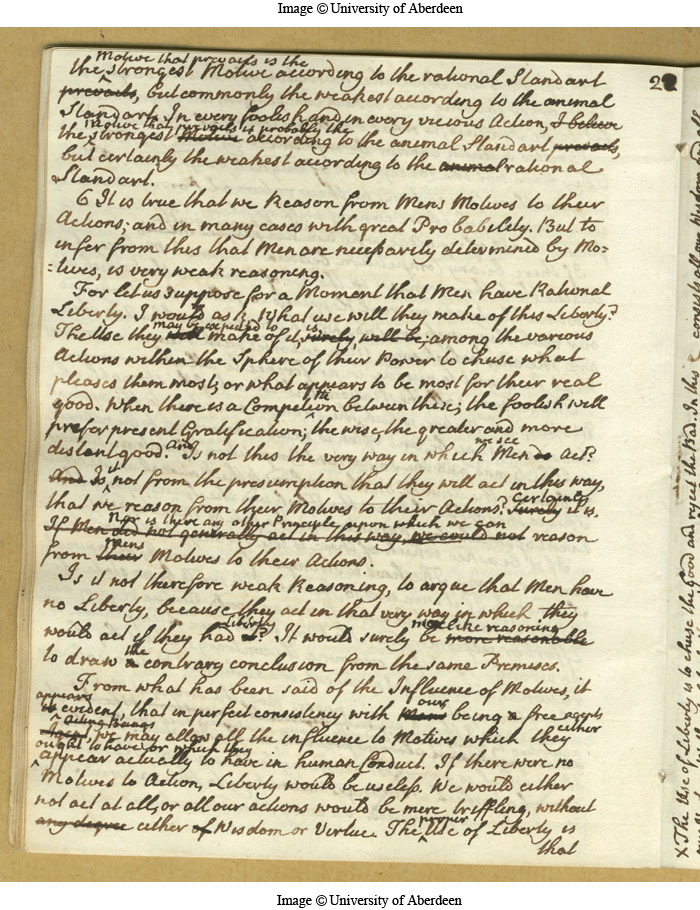 Image © University of Aberdeen
2
Motive that prevails is the
the strongest Motive according to the rational Standart
prevails, but commonly the weakest according to the animal
Standart. In every foolish and in every vicious Action, I believe
motive that prevails is probably the
the strongest Motive according to the animal Standart prevails,
but certainly the weakest according to the animal rational
Standart.
6 It is true that we Reason from Mens Motives to their
Actions; and in many cases with great Probability. But to
infer from this that Men are necessarily determined by Mo=
=tives, is very weak reasoning.
For let us suppose for a Moment that Men have Rational
Liberty. I would ask, What use will they make of this Liberty?
may be expected to is
The Use they will make of it, surely, will be; among the various
Actions within the Sphere of their Power to chuse what
pleases them most; or what appears to be most for their real
good. When there is a Competition between these; the foolish will
prefer present Gratification; the wise, the greater and more
And we see
distant good. Is not this the very way in which Men do act?
it
And Is not from the presumption that they will act in this way,
Certainly
that we reason from their Motives to their Actions? Surely it is.
Nor is there any other Principle, upon which we can
If Men did not generally act in this way, we could not reason
mens
from their Motives to their Actions.
Is it not therefore weak Reasoning, to argue that Men have
no Liberty, because they act in that very way in which they
liberty more like reasoning
would act if they had it? It would surely be more reasonable
the
to draw a contrary conclusion from the same Premises.
From what has been said of the Influence of Motives, it
appears our
is evident, that in perfect consistency with Mans being a free agents
acting Beings either
Agent, we may allow all the influence to Motives which they
ought to have, or which they
appear actually to have in human Conduct. If there were no
Motives to Action, Liberty would be useless. We would either
not act at all, or all our actions would be mere triffling, without
proper
any degree either of Wisdom or Virtue. The Use of Liberty is
that
X The Use of Liberty is to chuse the Good and reject the Bad. In this
Image © University of Aberdeen